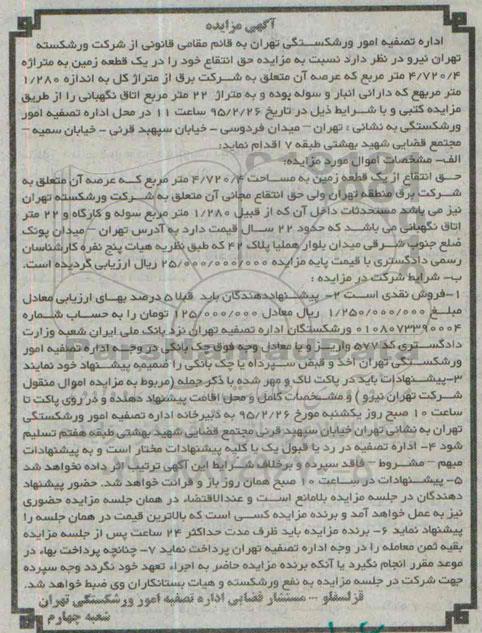 آگهی مزایده
اداره تصفیه امور ورشکستگی تهران به قائم مقامی قانونی از شرکت ورشکسته
تهران نیرو در نظر دارد نسبت به مزایده حق انتفاع خود را در یک قطعه زمین به متراژه
۴/۷۲۰/۴ متر مربع که عرصه آن متعلق به شرکت برق از متراژ کل به اندازه ۱/۲۸۰
متر مربهع که دارائی انبار و سوله بوده و به متراژ ۲۲ متر مربع اتاق نگهبانی را از طریق
مزایده کتبی و با شرایط ذیل در تاریخ ۹۵/۲/۲۶ ساعت ۱۱ در محل اداره تصفیه امور
ورشکستگی به نشانی : تهران – میدان فردوسی – خیابان سپهبد قرنی – خیابان سمیه –
مجتمع قضایی شهید بهشتی طبقه ۷ اقدام نماید:
الف- مشخصات اموال مورد مزایده:
حق انتفاع از یک قطعه زمین به مساحت ۴/۷۲۰/۴ متر مربع که عرصه آن متعلق به
شرکت برق منطقه تهران ولی حق انتفاع مجانی آن متعلق به شرکت ورشکسته تهران
نیز می باشد مستحدثات داخل آن که از قبیل ۱/۲۸۰ متر مربع سوله و کارگاه و ۲۲ متر
اتاق نگهبانی می باشد که حدود ۲۲ سال قیمت دارد به آدرس تهران – میدان پونک
ضلع جنوب شرقی میدان بلوار همیلا پلاک ۴۲ که طبق نظریه هیات پنج نفره کارشناسان
رسمی دادگستری با قیمت پایه مزایده ۲۵/۰۰۰/۰۰۰/۰۰۰ ریال ارزیابی گردیده است.
ب- شرایط شرکت در مزایده :
۱-فروش نقدی است ۲- پیشنهاددهندگان باید قبلا ۵ درصد بهای ارزیابی معادل
مبلغ ۱/۲۵۰/۰۰۰/۰۰۰ ریال معادل ۱۲۵/۰۰۰/۰۰۰ تومان را به حساب شماره
۰۱۰۸۰۷۳۳۹۰۰۰۴ ورشکستگان اداره تصفیه تهران نزد بانک ملی ایران شعبه وزارت
دادگستری کد ۵۷۷ واریز و یا معادل وجه فوق چک بانکی در وجه اداره تصفیه امور
ورشکستگی تهران اخذ و قبض سپرده یا چک بانکی را ضمیمه پیشنهاد خود نمایند
۳-پیشنهادات باید در پاکت لاک و مهر شده با ذکر جمله (مربوط به مزایده اموال منقول
شرکت تهران نیرو ) و مشخصات کامل و محل اقامت پیشنهاد دهنده و در روی پاکت تا
ساعت ۱۰ صبح روز یکشنبه مورخ ۹۵/۲/۲۶ به دبیرخانه اداره تصفیه امور ورشکستگی
تهران به نشانی تهران خیابان سپهبد قرنی مجتمع قضایی شهید بهشتی طبقه هفتم تسلیم
شود ۴- اداره تصفیه در رد یا قبول یک یا کلیه پیشنهادات مختار است و به پیشنهادات
مبهم – مشروط – فاقد سپرده و برخلاف شرایط این آگهی ترتیب اثر داده نخواهد شد
۵- پیشنهادات در ساعت ۱۰ صبح همان روز باز و قرائت خواهد شد. حضور پیشنهاد
دهندگان در جلسه مزایده بلامانع است و عندالاقتضاء در همان جلسه مزایده حضوری
نیز به عمل خواهد آمد و برنده مزایده کسی است که بالاترین قیمت در همان جلسه را
پیشنهاد نماید ۶- برنده مزایده باید ظرف مدت حداکثر ۲۴ ساعت پس از جلسه مزایده
بقیه ثمن معامله را در وجه اداره تصفیه تهران پرداخت نماید ۷- چنانچه پرداخت بهاء در
موعد مقرر انجام نگیرد یا آنکه برنده مزایده حاضر به اجراء تعهد خود نگردد وجه سپرده
جهت شرکت در جلسه مزایده به نفع ورشکسته و هیات بستانکاران وی ضبط خواهد شد.
قزلسفلو – مستشار قضایی اداره تصفیه امور ورشکستگی تهران
شعبه چهارم